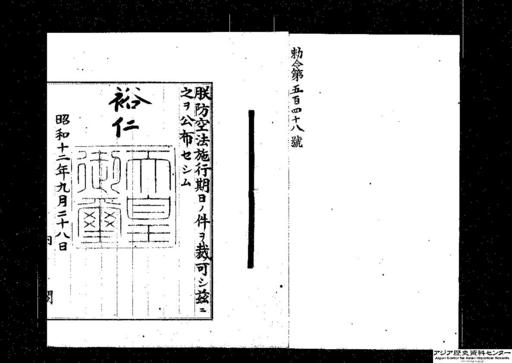 勅令第五百四十八號
朕防空法施行期日ノ件ヲ裁可シ玆ニ
之ヲ公布セシム
裕仁
天皇御璽
昭和十二年九月二十八日
内閣
アジア歴史資料センター
Japan Center for Asian Historical Records